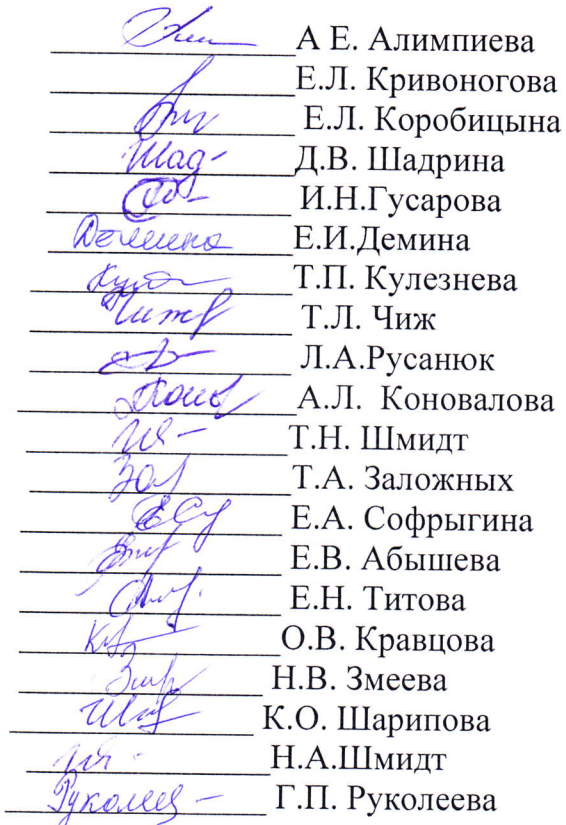 А Е. Алимпиева
Е.Л. Кривоногова
Е.Л. Коробицына
Шад- Д.В. Шадрина
И.Н.Гусарова
Демина Е.И.Демина
Т.П. Кулезнева
Чиж Т.Л. Чиж
Л.А.Русанюк
Конов А.Л. Коновалова
Т.Н. Шмидт
Зал Т.А. Заложных
Е.А. Софрыгина
Е.В. Абышева
Е.Н. Титова
О.В. Кравцова
Н.В. Змеева
К.О. Шарипова
Н.А.Шмидт
Руколеев - Г.П. Руколеева